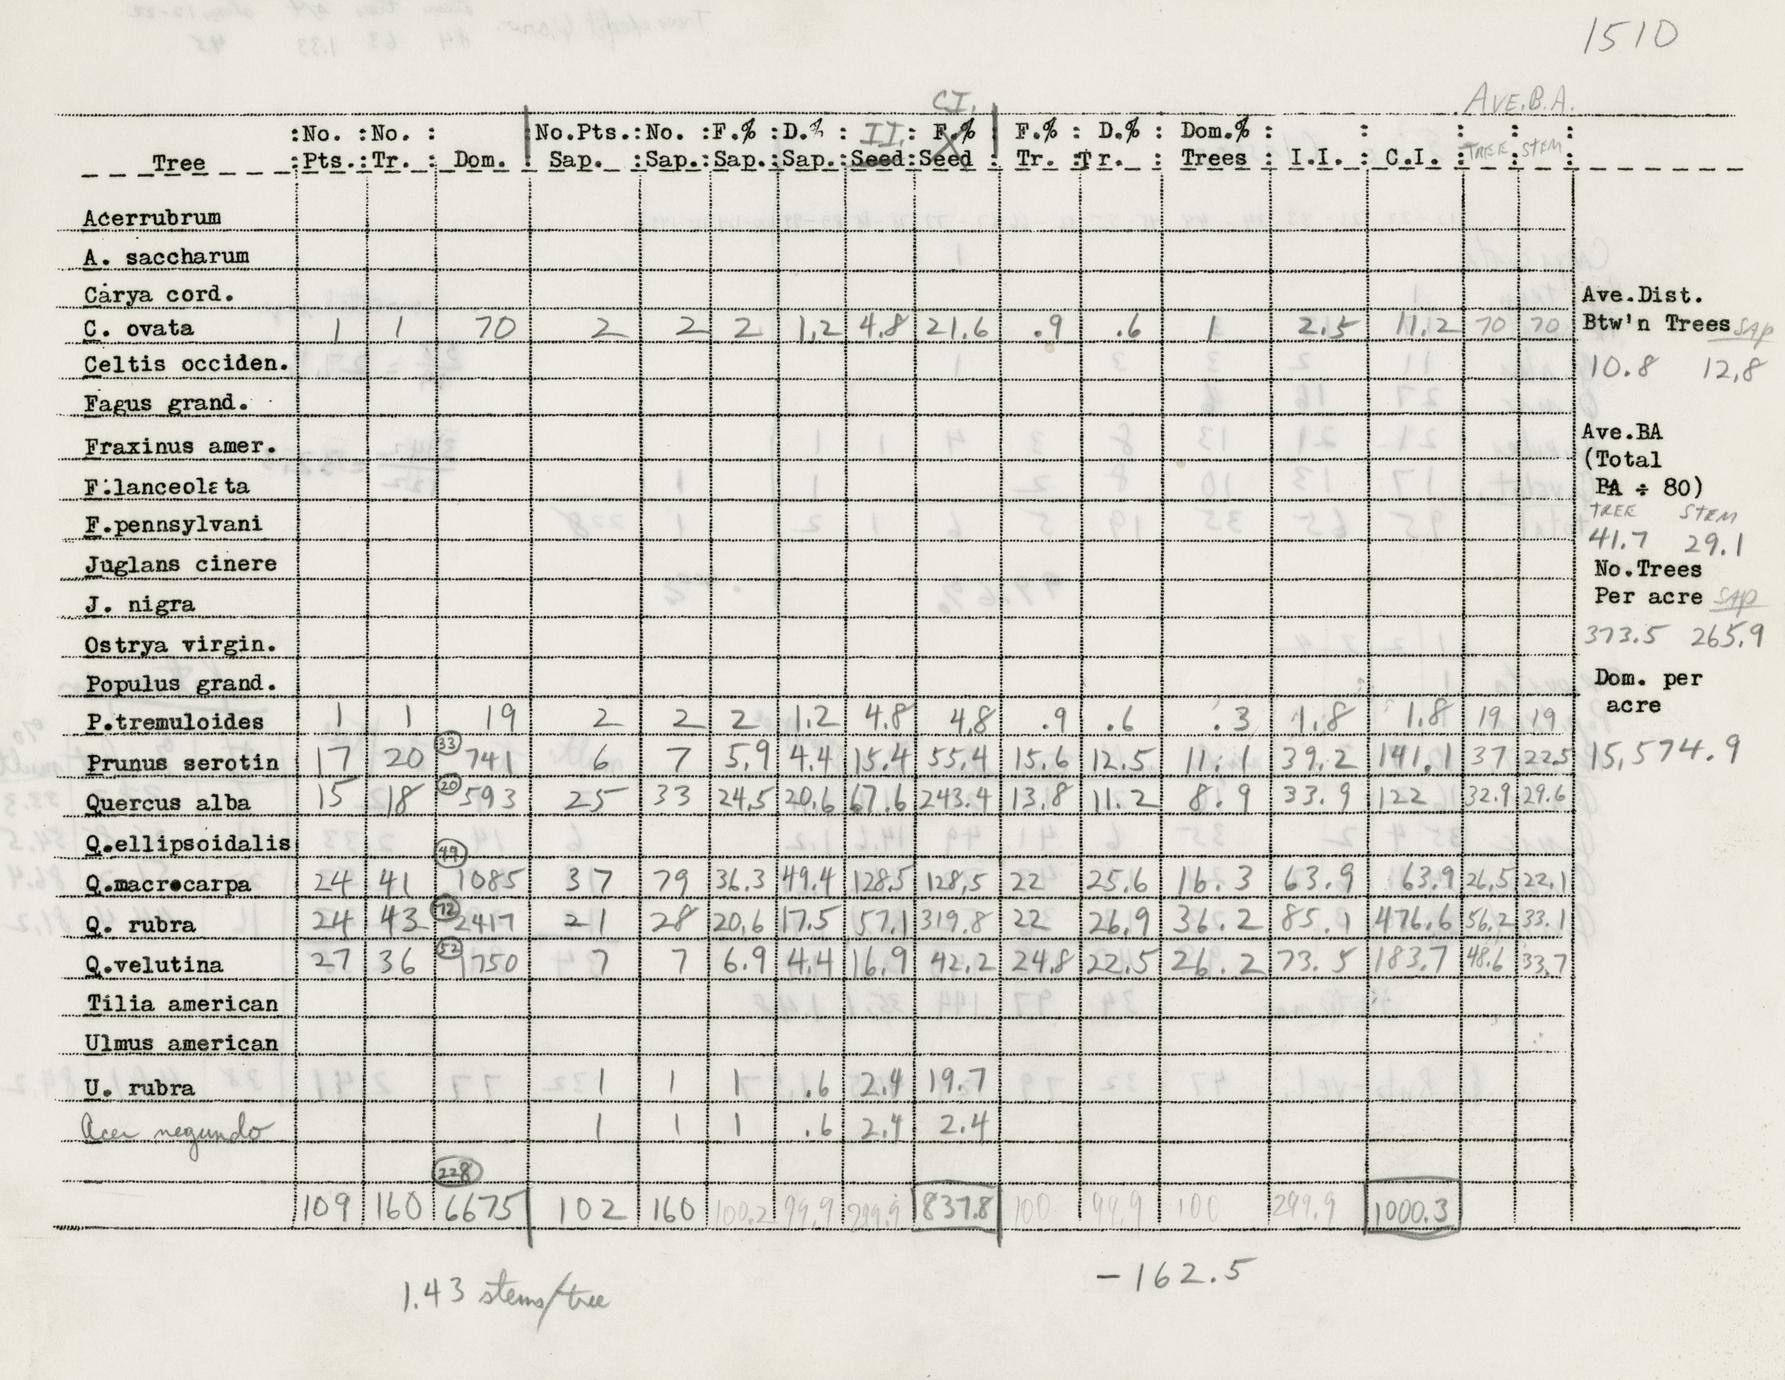 1510
CI. AVE.B.A.
:No. :No. : :No.Pts.:No. :F.% :D.% : II.: F.% : F.% : D.% : Dom.% : : : : :
Tree :Pts.:Tr. : Dom. : Sap. :Sap.:Sap.:Sap.:Seed:Seed : Tr. :Tr. : Trees : I.I. : C.I. :TREE:STEM:
Acerrubrum
A. saccharum
Carya cord. Ave.Dist.
C. ovata 1 1 70 2 2 2 1.2 4.8 21.6 .9 .6 1 2.5 11.2 70 70 Btw'n Trees SAP
Celtis occiden. 10.8 12.8
Fagus grand.
Fraxinus amer. Ave.BA
(Total
F.lanceolata BA ÷ 80)
F.pennsylvani TREE STEM
41.7 29.1
Juglans cinere No.Trees
J. nigra Per acre SAP
Ostrya virgin. 373.5 265.9
Populus grand. Dom. per
acre
P.tremuloides 1 1 19 2 2 2 1.2 4.8 4.8 .9 .6 .3 1.8 1.8 19 19
Prunus serotin 17 20 (33) 741 6 7 5.9 4.4 15.4 55.4 15.6 12.5 11.1 39.2 141.1 37 22.5 15,574.9
Quercus alba 15 18 (20) 593 25 33 24.5 20.6 67.6 243.4 13.8 11.2 8.9 33.9 122 32.9 29.6
Q.ellipsoidalis
Q.macrocarpa 24 41 (49) 1085 37 79 36.3 49.4 128.5 128.5 22 25.6 16.3 63.9 63.9 26.5 22.1
Q. rubra 24 43 (72) 2417 21 28 20.6 17.5 57.1 319.8 22 26.9 36.2 85.1 476.6 56.2 33.1
Q.velutina 27 36 (52) 1750 7 7 6.9 4.4 16.9 42.2 24.8 22.5 26.2 73.5 183.7 48.6 33.7
Tilia american
Ulmus american
U. rubra 1 1 1 .6 2.4 19.7
Acer negundo 1 1 1 .6 2.4 2.4
(228)
109 160 6675 102 160 100.2 99.9 299.9 837.8 100 99.9 100 299.9 1000.3
1.43 stems/tree -162.5